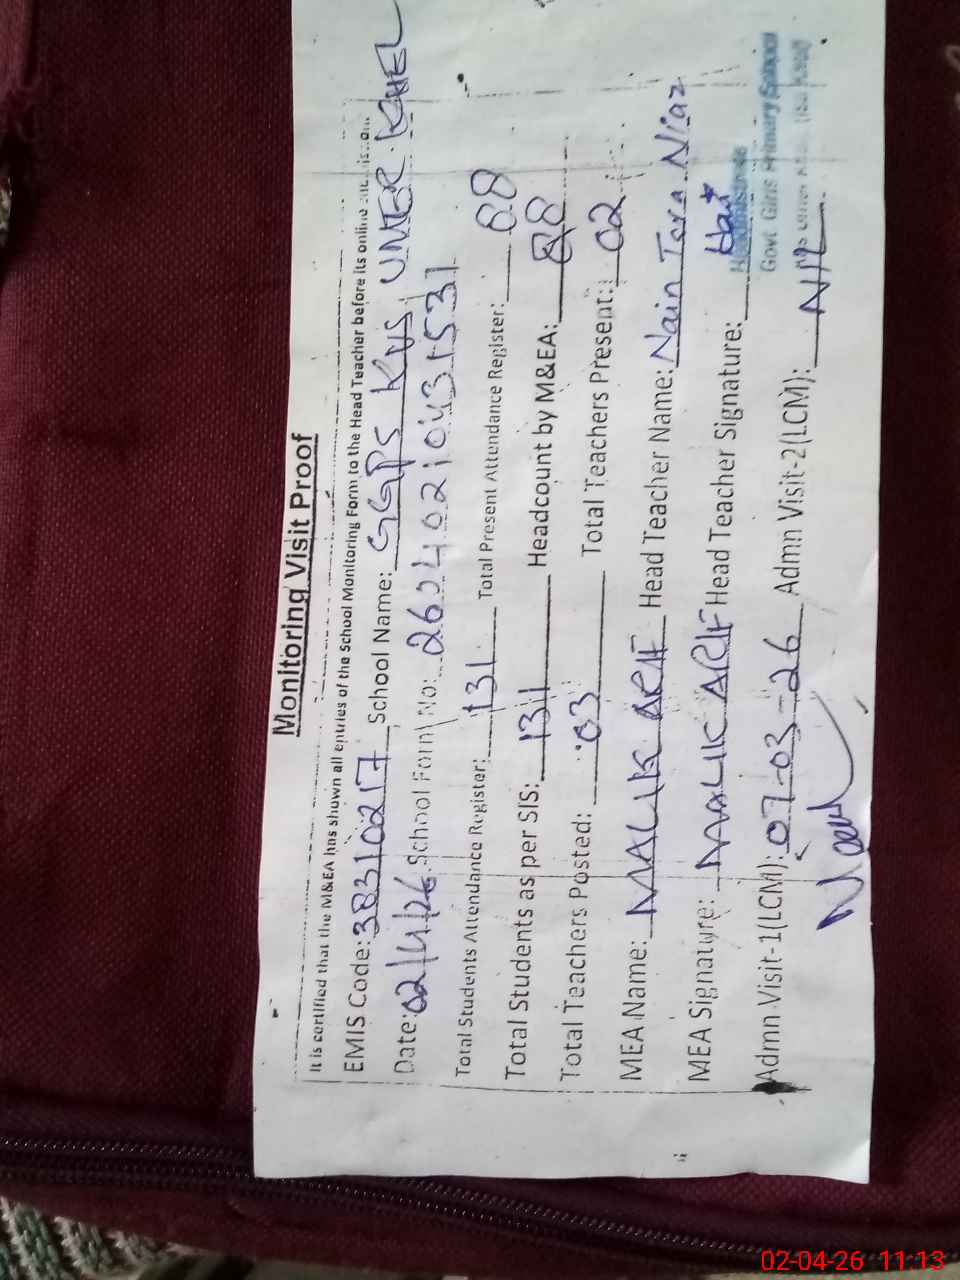 Monitoring Visit Proof
It is certified that the M&EA has shown all entries of the School Monitoring Form to the Head Teacher before its online
EMIS Code: 38310217 School Name: GGPS KHS UMER KHEL
Date: 02/4/26 School Form No: 26040210431531
Total Students Attendance Register: 131 Total Present Attendance Register: 88
Total Students as per SIS: 131 Headcount by M&EA: 88
Total Teachers Posted: 03 Total Teachers Present: 02
MEA Name: MALIK ARIF Head Teacher Name: Nain Tara Niaz
MEA Signature: MALIK ARIF Head Teacher Signature:
Headmistress
Govt Girls Primary School
Admn Visit-1(LCM): 07-03-26 Admn Visit-2(LCM): NIL
02-04-26 11:13